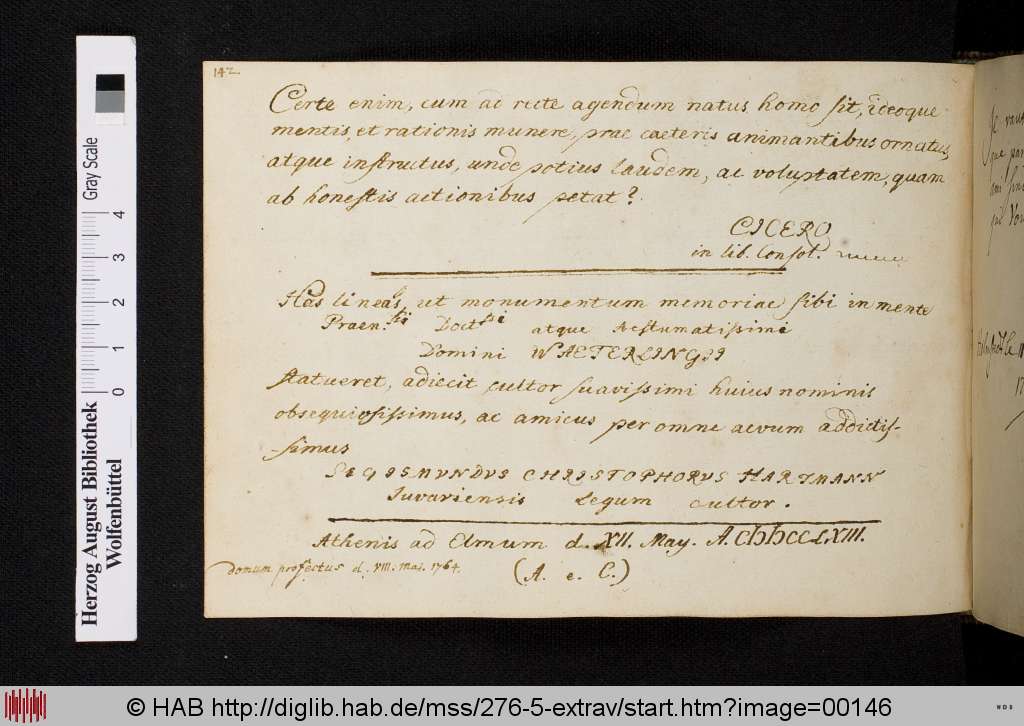 142.
Certe enim, cum ad recte agendum natus homo sit, ideoque
mentis, et rationis munere, prae caeteris animantibus ornatus,
atque instructus, unde potius laudem, ac voluptatem, quam
ab honestis actionibus petat?
CICERO
in lib. Consol.
Has lineas, ut monumentum memoriae sibi in mente
Praen.sti Doctssi atque Aestumatissimi
Domini WAETERLINGII
statueret, adiecit cultor suavissimi huius nominis
obsequiosissimus, ac amicus per omne aevum addictis-
-simus
SIGISMVNDVS CHRISTOPHORVS HARTMANN
Iuvariensis Legum cultor.
Athenis ad Elmum d. XII. May. A. chhccLXIII.
domum profectus d. VIII. Mai. 1764. (A. e. C.)
Herzog August Bibliothek
Wolfenbüttel
0 1 2 3 4
Gray Scale
© HAB http://diglib.hab.de/mss/276-5-extrav/start.htm?image=00146
WDB